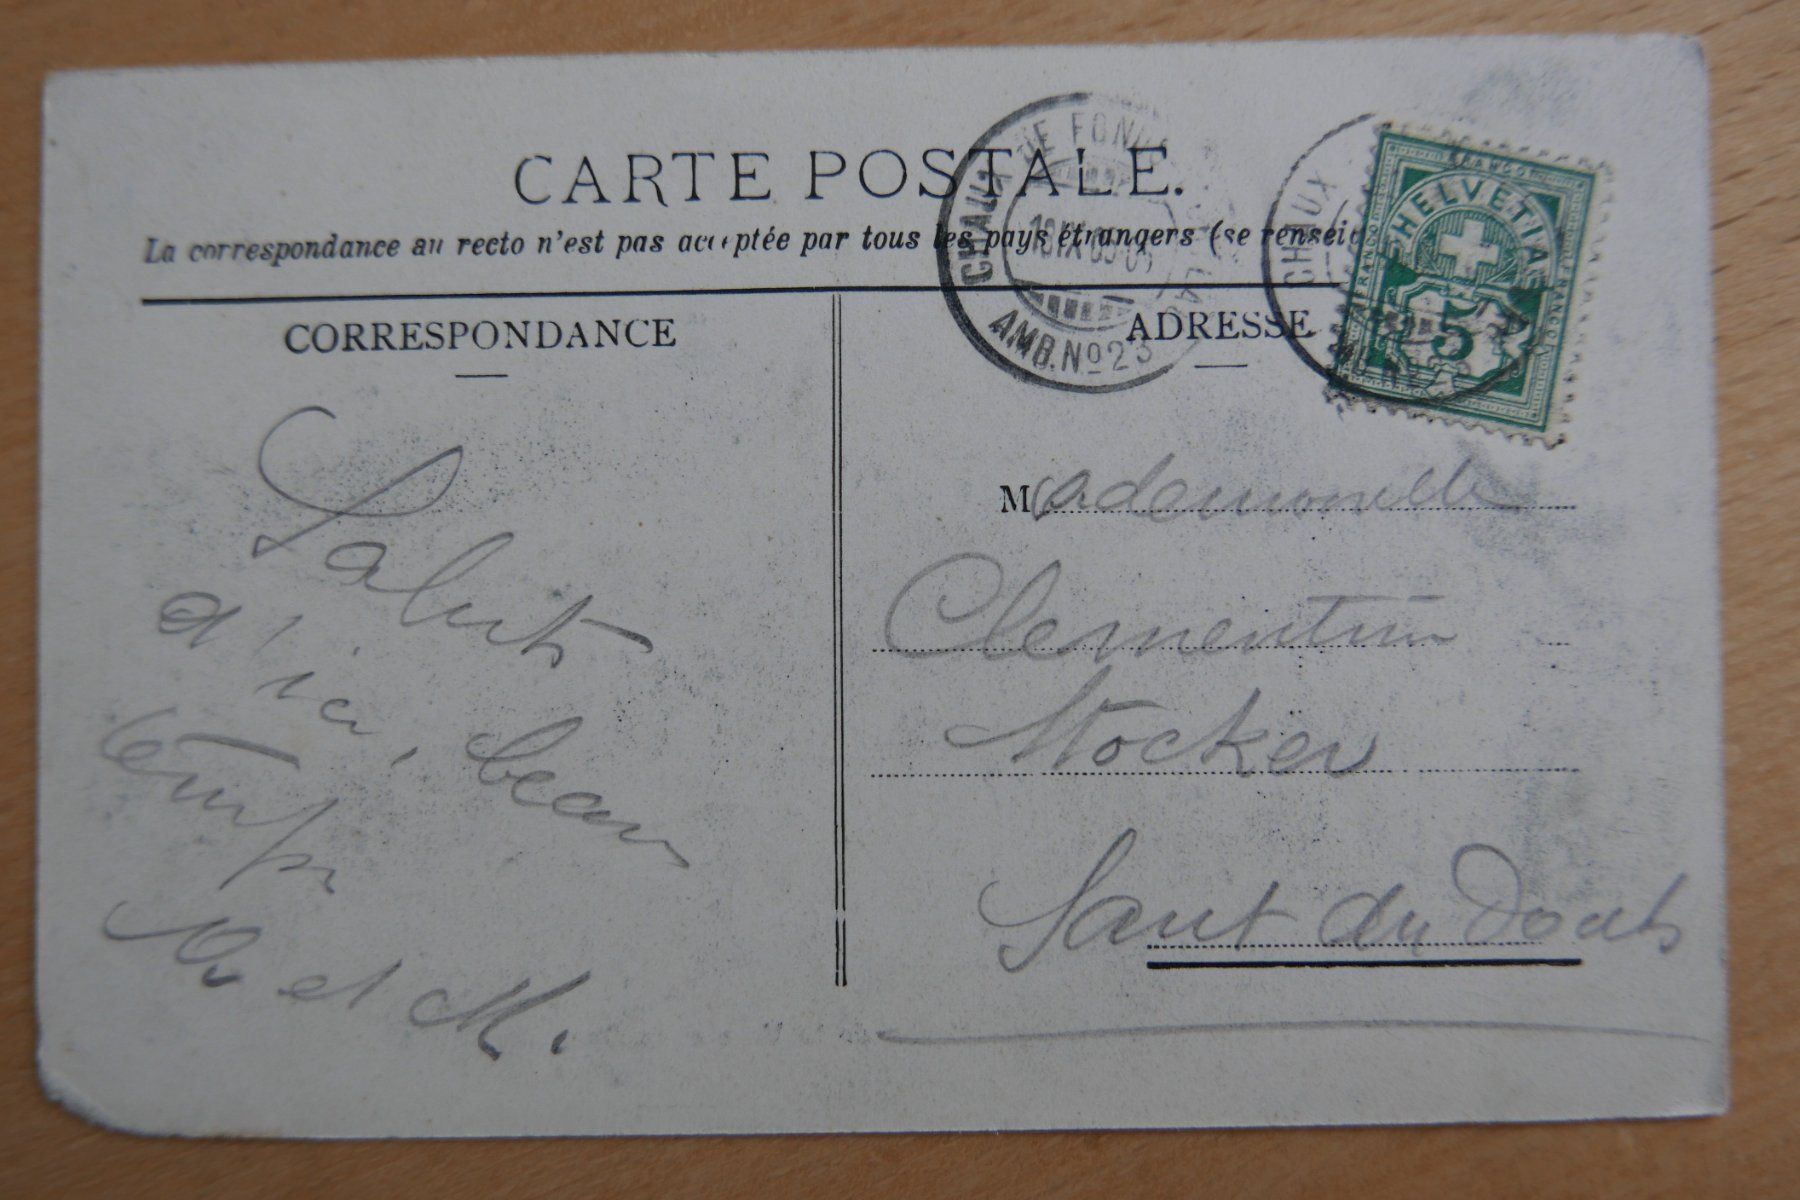 CARTE POSTALE.
La correspondance au recto n'est pas acceptée par tous les pays étrangers (se rensei
CORRESPONDANCE
ADRESSE
CHAUX DE FONDS
AMB. No 23
CHAUX
FRANCO
HELVETIA
FRANCO
FRANCO
5
Salut
d'ici, beau
temps
et M.
Mademoiselle
Clementine
Stocker
Saut du Doubs